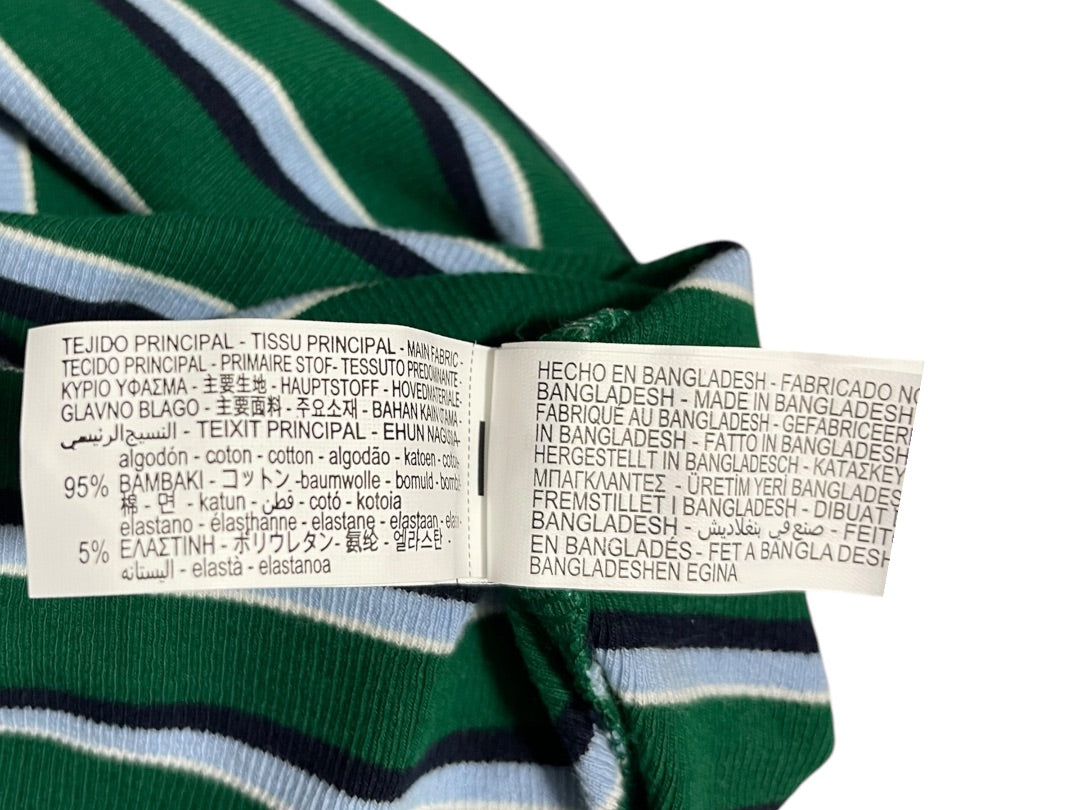 TEJIDO PRINCIPAL - TISSU PRINCIPAL - MAIN FABRIC -
TECIDO PRINCIPAL - PRIMAIRE STOF- TESSUTO PREDOMINANTE -
ΚΥΡΙΟ ΥΦΑΣΜΑ - 主要生地 - HAUPTSTOFF - HOVEDMATERIALE-
GLAVNO BLAGO - 主要面料 - 주요소재 - BAHAN KAIN UTAMA -
النسيج الرئيسي - TEIXIT PRINCIPAL - EHUN NAGUSIA-
algodón - coton - cotton - algodão - katoen -
95% BAMBAKI - コットン -baumwolle - bomuld -
棉 - 면 - katun - قطن - cotó - kotoia
elastano - élasthanne - elastane - elastaan -
5% ΕΛΑΣΤΙΝΗ - ポリウレタン- 氨纶 - 엘라스탄 -
اليستانه - elastà - elastanoa
HECHO EN BANGLADESH - FABRICADO NO
BANGLADESH - MADE IN BANGLADESH
FABRIQUÉ AU BANGLADESH - GEFABRICEER
IN BANGLADESH - FATTO IN BANGLADESH
HERGESTELLT IN BANGLADESCH - ΚΑΤΑΣΚΕΥ
ΜΠΑΓΚΛΑΝΤΕΣ - ÜRETİM YERİ BANGLADES
FREMSTILLET I BANGLADESH - DIBUAT
BANGLADESH - صنع في بنغلاديش - FEIT
EN BANGLADÉS - FET A BANGLA DESH
BANGLADESHEN EGINA